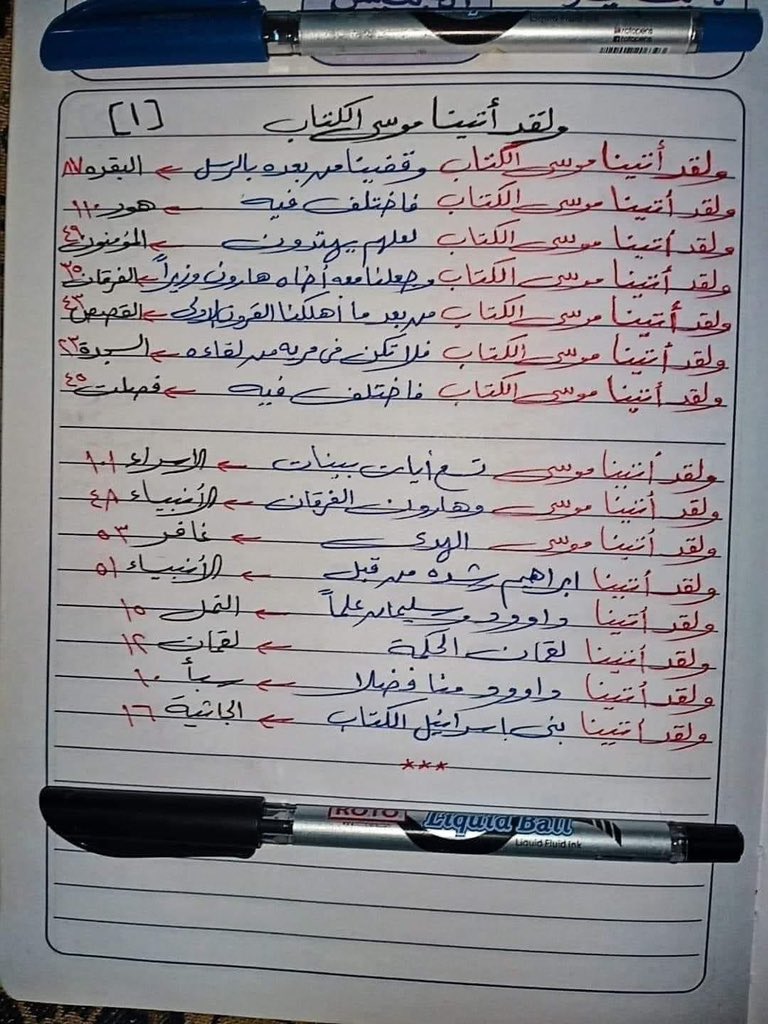 Liquid Fluid ink
rotopens
rotopens
ولقد أتينا موسى الكتاب [١]
ولقد أتينا موسى الكتاب وقفينا من بعده بالرسل ← البقره ٨٧
ولقد أتينا موسى الكتاب فاختلف فيه ← هود ١١٠
ولقد أتينا موسى الكتاب لعلهم يهتدون ← المؤمنون ٤٩
ولقد أتينا موسى الكتاب وجعلنا معه أخاه هارون وزيراً ← الفرقان ٣٥
ولقد أتينا موسى الكتاب من بعد ما أهلكنا القرون الاولى ← القصص ٤٣
ولقد أتينا موسى الكتاب فلا تكن فى مريه من لقاءه ← السجدة ٢٣
ولقد أتينا موسى الكتاب فاختلف فيه ← فصلت ٤٥
ولقد أتينا موسى تسع أيات بينات ← الإسراء ١٠١
ولقد أتينا موسى وهارون الفرقان ← الأنبياء ٤٨
ولقد أتينا موسى الهدى ← غافر ٥٣
ولقد أتينا ابراهيم رشده من قبل ← الأنبياء ٥١
ولقد أتينا داوود وسليمان علماً ← النمل ١٥
ولقد أتينا لقمان الحكمة ← لقمان ١٢
ولقد أتينا داوود منا فضلا ← سبأ ١٠
ولقد أتينا بنى إسرائيل الكتاب ← الجاثية ١٦
***
ROTO Liquid Ball
Liquid Fluid ink